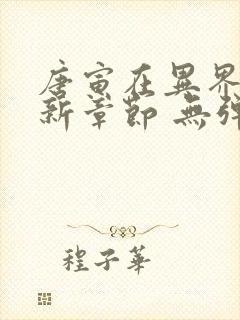 唐寅在異界
新章節 無彈
程子華